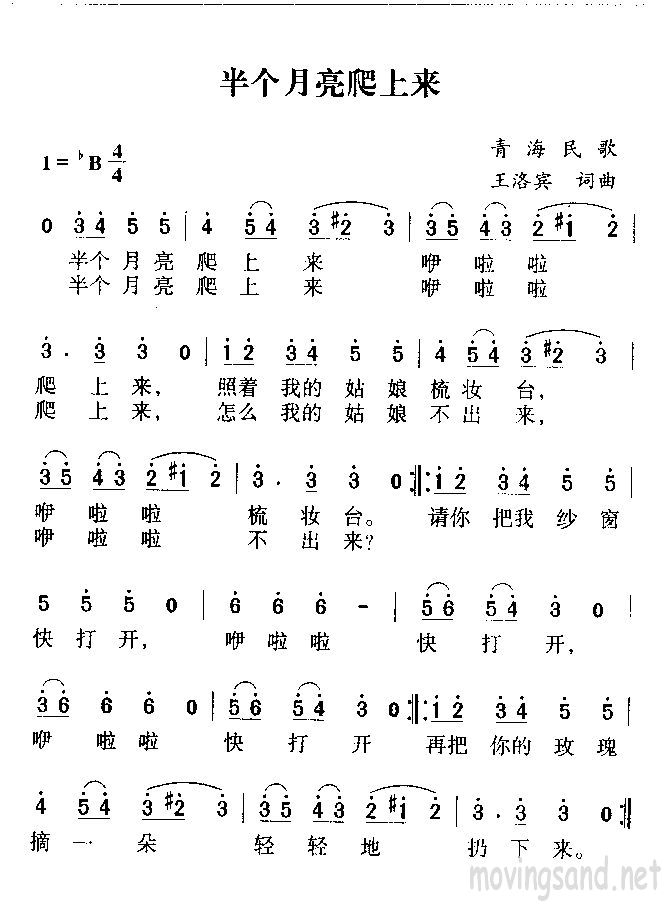 半个月亮爬上来
1=♭B 4/4
青海民歌
王洛宾 词曲
0 3 4 5 5 | 4 5 4 3 #2 3 | 3 5 4 3 2 #1 2 |
半个月亮 爬上来 咿啦啦
半个月亮 爬上来 咿啦啦
3 · 3 3 0 | 1 2 3 4 5 5 | 4 5 4 3 #2 3 |
爬上来, 照着我的姑娘梳妆台,
爬上来, 怎么我的姑娘不出来,
3 5 4 3 2 #1 2 | 3 · 3 3 0 :||: 1 2 3 4 5 5 |
咿啦啦 梳妆台。 请你把我纱窗
咿啦啦 不出来?
5 5 5 0 | 6 6 6 - | 5 6 5 4 3 0 |
快打开, 咿啦啦 快打开,
3 6 6 6 0 | 5 6 5 4 3 0 :||: 1 2 3 4 5 5 |
咿啦啦 快打开 再把你的玫瑰
4 5 4 3 #2 3 | 3 5 4 3 2 #1 2 | 3 · 3 3 0 :||
摘一朵 轻轻地 扔下来。
movingsand.net